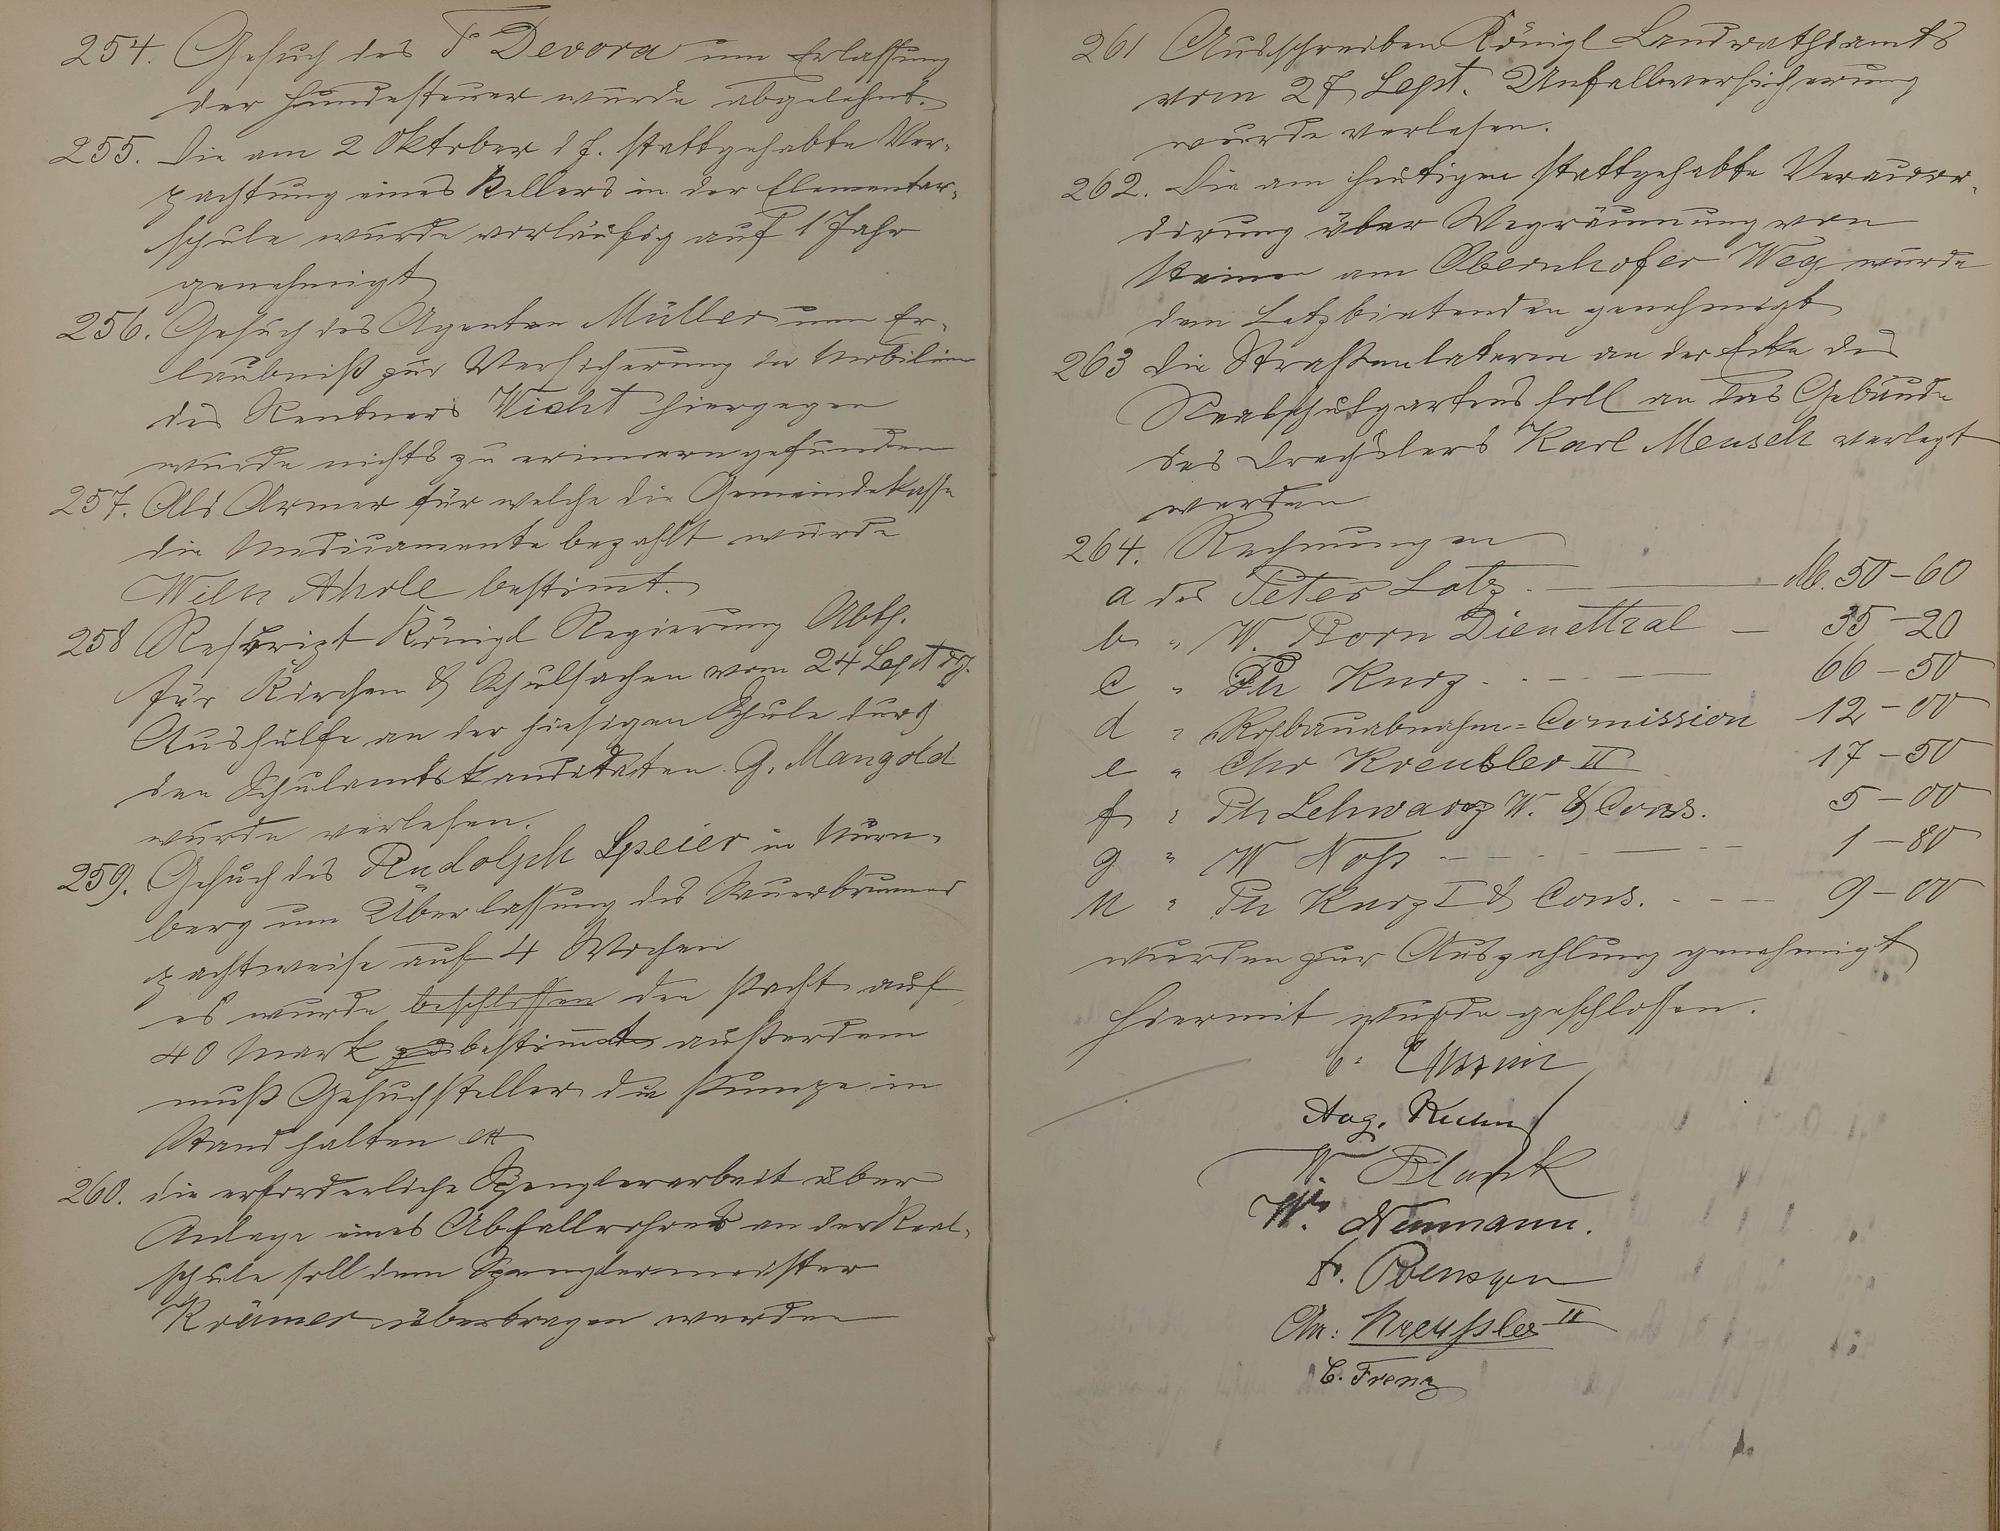 254. Gesuch des F Devora um Erlassung
der Hundesteuer wurde abgelehnt.
255. Die am 2 Oktober d J. stattgehabte Ver-
pachtung eines Kellers in der Elementar-
schule wurde vorläufig auf 1 Jahr
genehmigt
256. Gesuch des Agenten Müller um Er-
laubniß zur Versicherung der Mobilien
des Rentners Wicht hiergegen
wurde nichts zu erinnern gefunden
257. Als Armer für welche die Gemeindekasse
die Medicamente bezahlt wurde
Wilh Ahole bestimt.
258 Rescript Königl Regierung Abth.
für Kirchen & Schulsachen vom 24 Sept dJ.
Aushülfe an der hiesigen Schule durch
den Schulamtskandidaten G. Mangold
wurde verlesen.
259. Gesuch des Rudolph Speier in Nürn-
berg um Überlassung des Sauerbrunnes
pachtweise auf 4 Wochen
es wurde beschlossen den Pacht auf
40 Mark bestimmt außerdem
muß Gesuchsteller die Pumpe in
Stand halten
260. die erforderliche Spenglerarbeit über
Anlage eines Abfallrohres an der Real-
schule soll dem Spenglermeister
Krämer übertragen werden
261 Ausschreiben Königl Landrathsamts
vom 27 Sept. Unfallversicherung
wurde verlesen.
262. Die am heutigen stattgehabte Veraccor-
dirung über Wegräumung von
Steinen am Obernhofer Weg wurde
dem Letzbietenden genehmigt
263 Die Straßenlaterne an der Ecke des
Realschulgartens soll an das Gebäude
des Drechslers Karl Meusch verlegt
werden
264. Rechnungen
a des Peter Lotz. — M. 50-60
b " W. Born Dienethal — 35-20
c " Ph Kurz - - - - 66-50
d " Rohbauabnahm=Comission 12-00
e " Chr Kreusler II 17-50
f " Ph Schwarz W. & Cons. 5-00
g " W Noß - - - - 1-80
h " Ph Kurz I & Cons. - - - 9-00
wurden zur Auszahlung genehmigt
hiermit wurde geschlossen.
Aug. Kuhn
W. Blank
W. Neumann.
Chr: Kreußler II
C. Frenz